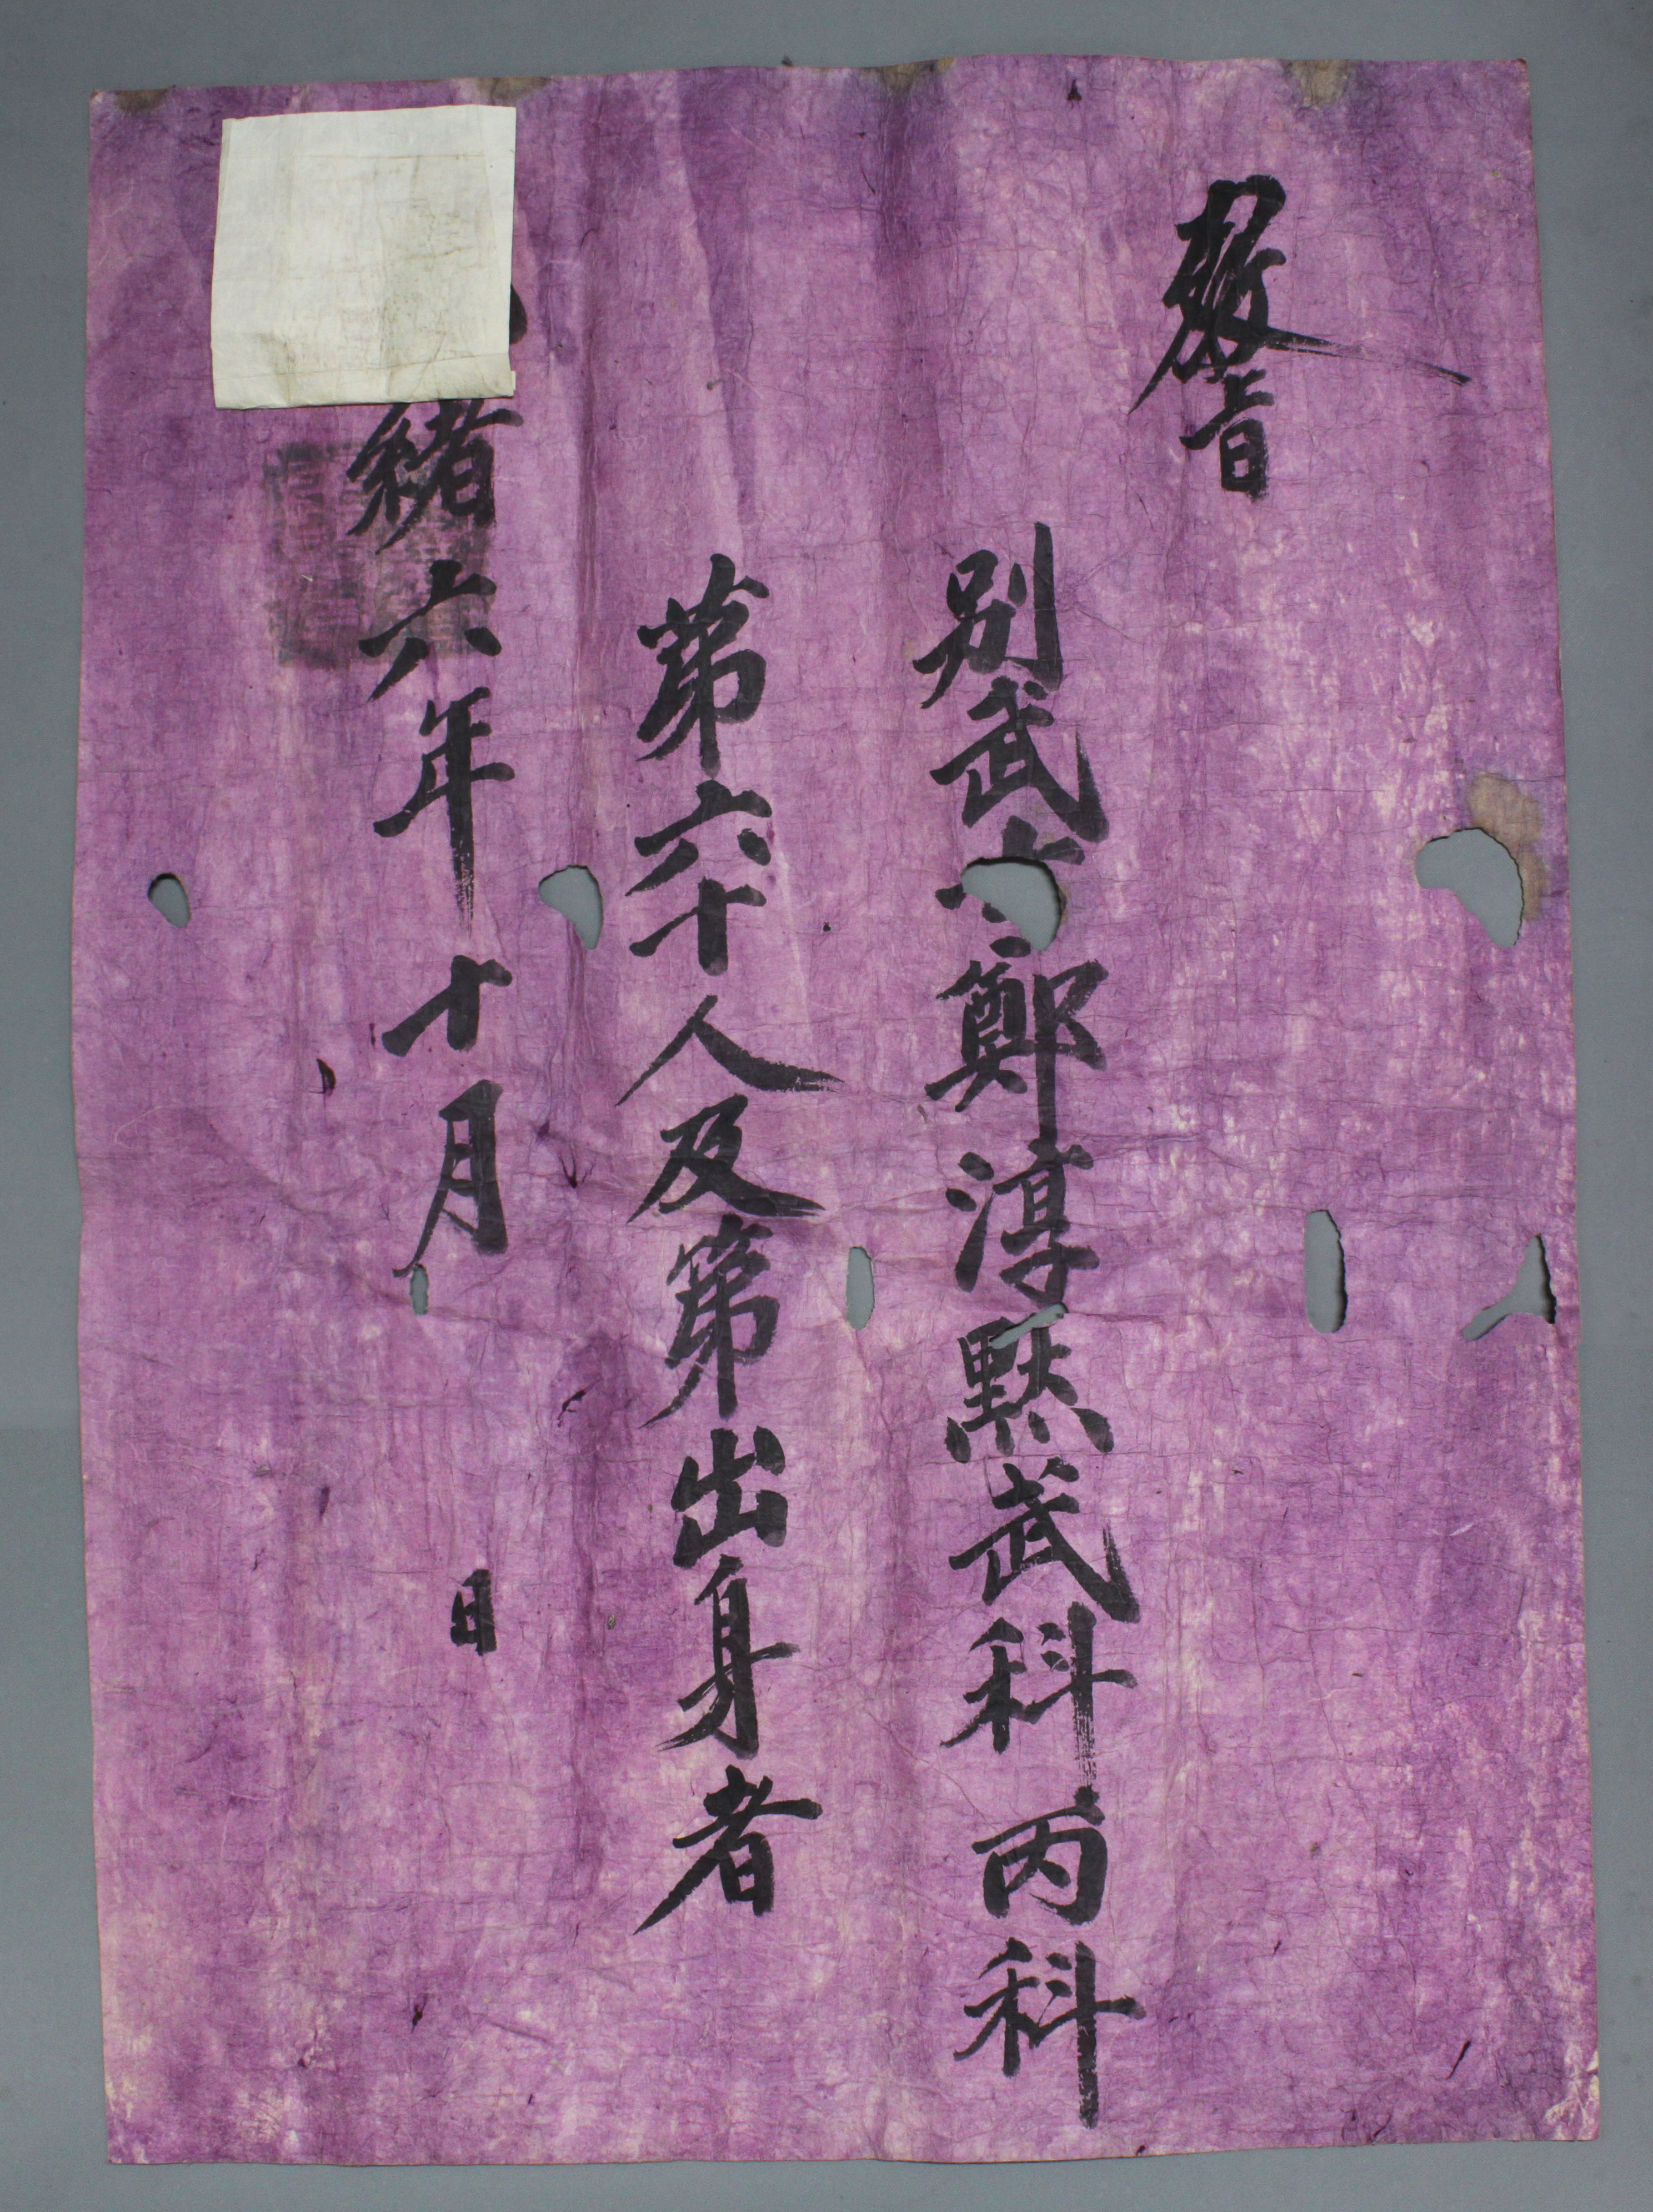 教旨
別武士鄭淳黙武科丙科
第六十人及第出身者
緖六年十月 日